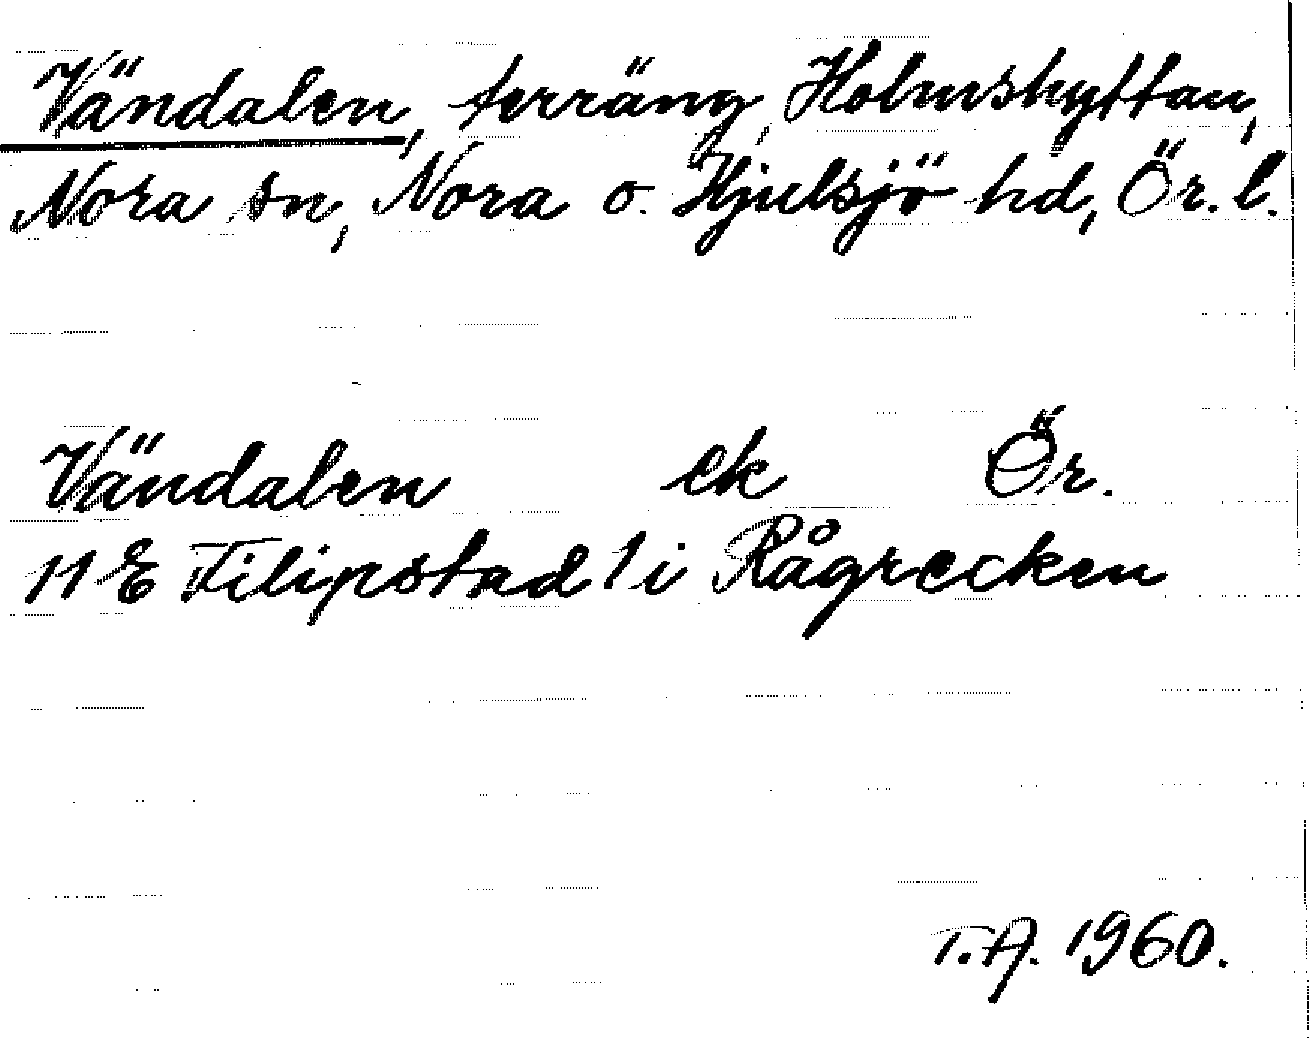 Vändalen, terräng, Holmshyttan,
Nora sn, Nora o. Hjulsjö hd, Ör. l.
Vändalen ek Ör.
11 E Filipstad 1 i Rågrecken
T.A. 1960.